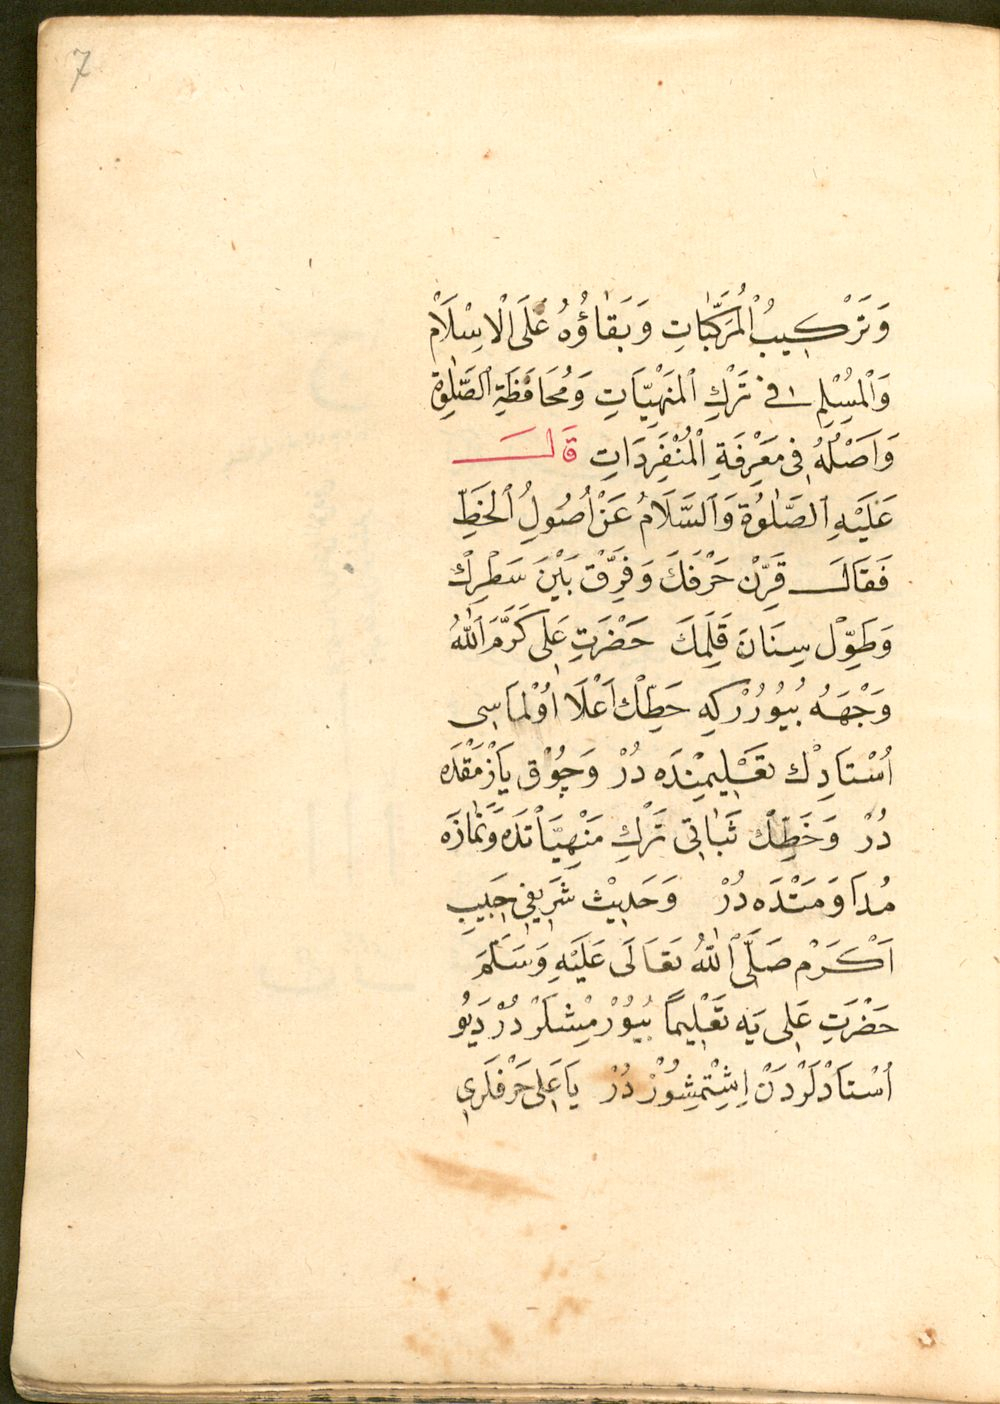 7
وَتَرْكِيبُ الْمُرَكَّبَاتِ وَبَقَاؤُهُ عَلَى الْاِسْلَامْ
وَالْمُسْلِمِ فِي تَرْكِ الْمَنْهِيَّاتِ وَمُحَافَظَةِ الصَّلٰوةِ
وَاَصْلُهُ فِي مَعْرِفَةِ الْمُنْفَرِدَاتِ قَالَ
عَلَيْهِ الصَّلٰوةُ وَالسَّلَامُ عَنْ اُصُولِ الْخَطِّ
فَقَالَ قَرِّنْ حَرْفَكَ وَفَرِّقْ بَيْنَ سَطْرِكَ
وَطَوِّلْ سِنَانَ قَلَمِكَ حَضْرَتِ عَلِي كَرَّمَ اللّٰهُ
وَجْهَهُ بُيُورُرْكِهِ خَطِّڭ اَعْلَا اُوْلْمَاسِى
اُسْتَادِڭ تَعْلِيمِنْدَه دُرْ وَچُوْق يَازْمَقْدَه
دُرْ وَخَطِّڭ ثَبَاتِى تَرْكِ مَنْهِيَّاتْدَه وَنَمَازَه
مُدَاوَمَتْدَه دُرْ وَحَدِيثِ شَرِيفِى حَبِيبِ
اَكْرَمْ صَلَّى اللّٰهُ تَعَالَى عَلَيْهِ وَسَلَّمَ
حَضْرَتِ عَلِى يَه تَعْلِيمًا بُيُوُرْمِشْلَرْدُرْ دَيُو
اُسْتَادْلَرْدَنْ اِشِتْمِشُوزْدُرْ يَا عَلِى حَرْفَلَرِى